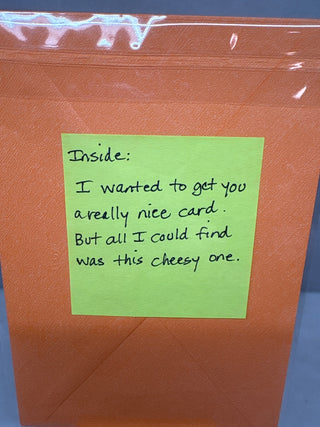 Inside:
I wanted to get you
a really nice card.
But all I could find
was this cheesy one.